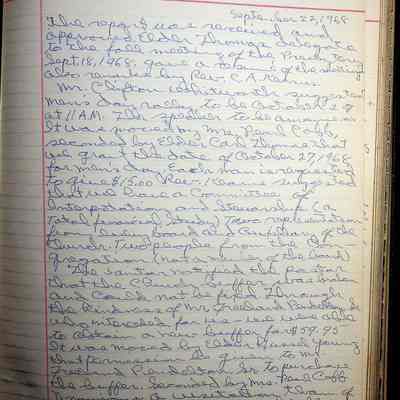 September 22, 1968
The report were received and
approved. Elder Thomas delegate
to the fall meeting of the Presbytery
Sept. 18, 1968. gave a of the meeting
also remarks by Rev. C.A. Kearns.
Mr. Clifton Whitworth suggested
men's day rally to be October 27
at 11 A.M. The speaker to be announce.
It was moved by Mrs. Pearl Cobb,
seconded by Elder Carl Thomas that
we grant the date of October 27, 1968
for men's day. Each man is requested
to give $15.00 Rev. Kearns suggested
that we have a Committee of
Interpretation and Stewardship (a
total financial study) Two representatives
from every board and auxiliary of the
church. Two people from the Con-
gregation (not a member of the board)
The sextor notified the pastor
that the Church buffer was broken
and could not be fixed. Through
the kindness of Mr. Freeland Pendleton Sr.
who interceded for us we were able
to obtain a new buffer for $59.95
It was moved by Elder Russell Young
that permission be given to Mr.
Freeland Pendleton Sr. to purchase
the buffer. Seconded by Mrs. Pearl Cobb
a visitation team of